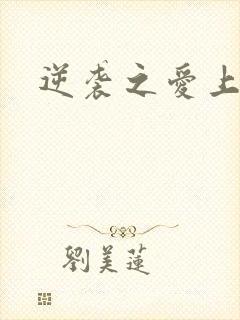 逆袭之愛上
劉美蓮